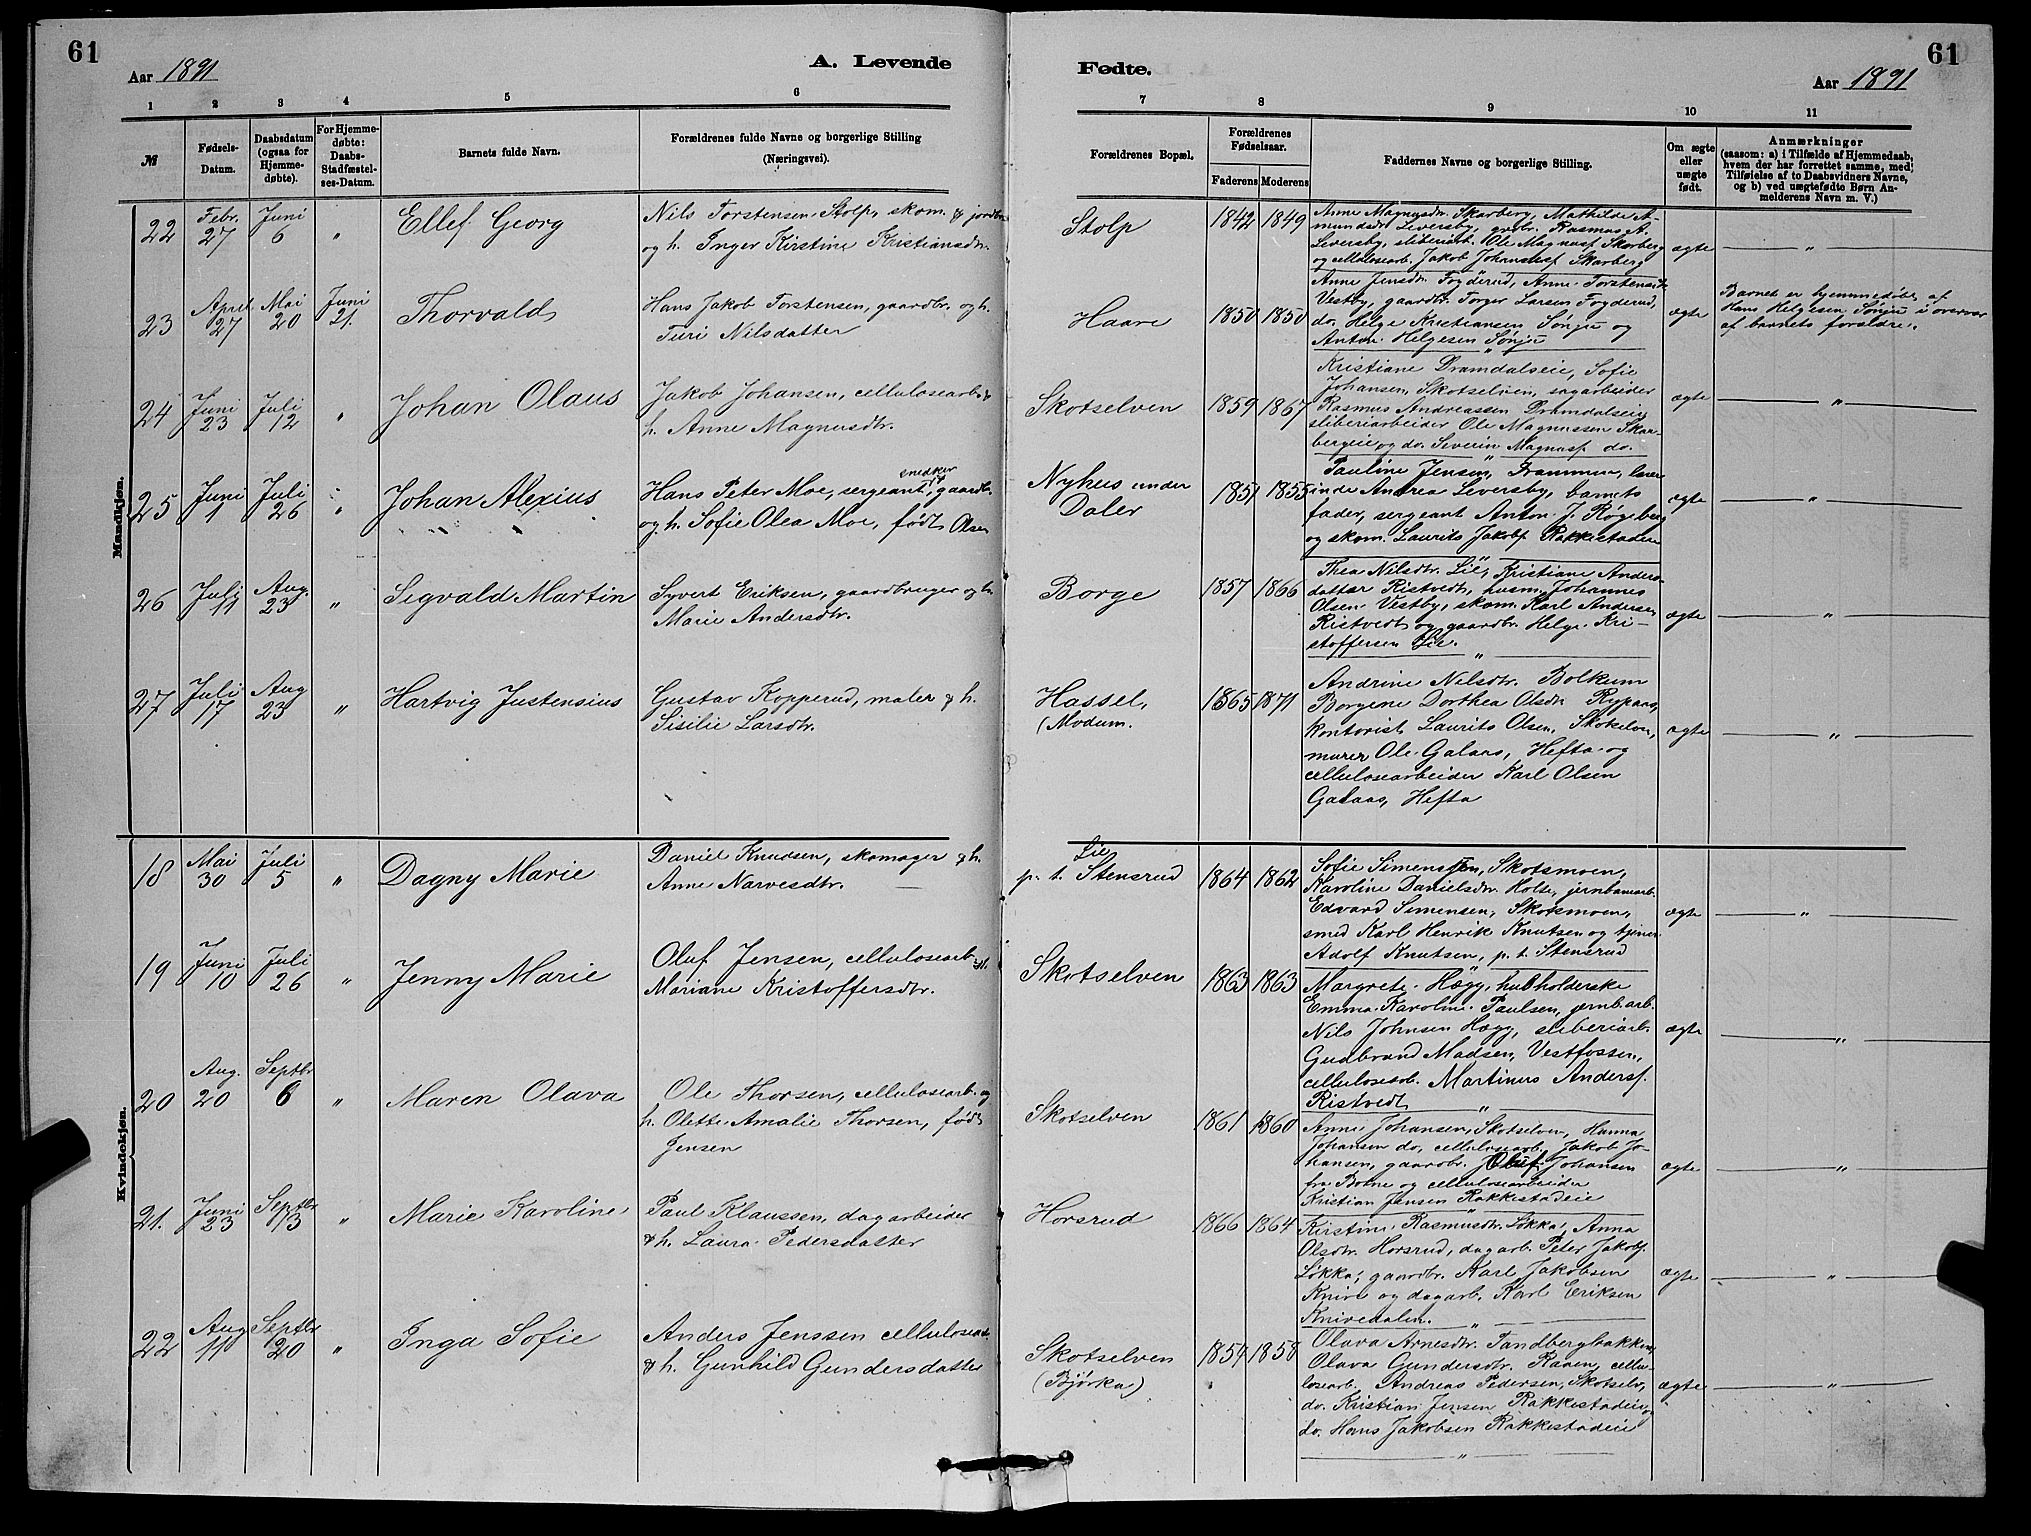 61
Aar 1891
A. Levende
Fødte.
Aar 1891
61
1 2 3 4 5 6 7 8 9 10 11
№
Fødsels-
Datum.
Daabsdatum
(ogsaa for
Hjemme-
døbte).
For Hjemme-
døbte:
Daabs-
Stadfæstel-
ses-Datum.
Barnets fulde Navn.
Forældrenes fulde Navne og borgerlige Stilling
(Næringsvei).
Forældrenes Bopæl.
Forældrenes
Fødselsaar.
Faderens Moderens
Faddernes Navne og borgerlige Stilling.
Om ægte
eller
uægte
født.
Anmærkninger
(saasom: a) i Tilfælde af Hjemmedaab,
hvem der har forrettet samme, med
Tilføielse af to Daabsvidners Navne,
og b) ved uægtefødte Børn An-
melderens Navn m. V.)
Mandkjøn.
22
Febr.
27
Juni
6
"
Ellef Georg
Nils Torstensen Stolp, skom. & jordbr.
og h. Inger Kirstine Kristiansdtr.
Stolp
1842 1849
Anne Magnusdtr. Skarberg, Mathilde A-
mundsdtr Leversby, grdbr. Rasmus A.
Leversby, sliberiarb. Ole Magnusf Skarberg
og cellulosearb. Jakob Johannesf Skarberg
ægte
"
23
April
27
Mai
20
Juni
21.
Thorvald
Hans Jakob Torstensen, gaardbr. og h.
Turi Nilsdatter
Haare
1850 1850
Anne Jensdtr. Fogderud, Anne Torstensdtr
Vestby, gaardbr. Torger Larsen Fogderud,
do. Helge Kristiansen Sønju og
Anton Helgesen Sønju
ægte
Barnet er hjemmedøbt af
Hans Helgesen Sønju i overvær
af barnets forældre.
24
Juni
23
Juli
12
"
Johan Olaus
Jakob Johansen, cellulosearb. &
h. Anne Magnusdtr.
Skotselven
1859 1867
Kristiane Dramdalseie, Sofie
Johansen, Skotselven, sagarbeider
Rasmus Andreassen Dramdalseie,
sliberiarbeider Ole Magnussen Skar-
bergeie og do. Severin Magnusf do.
ægte
"
25
Juni
1
Juli
26
"
Johan Alexius
snedker
Hans Peter Moe, sergeant, gaardbr.
og h. Sofie Olea Moe, født Olsen
Nyhus under
Daler
1851 1855
Pauline Jensen, Drammen, lærer-
inde Andrea Leversby, barnets
fader, sergeant Anton J. Røgeberg
og skom. Laurits Jakobf Rakkestadeie
ægte
"
26
Juli
11
Aug.
23
"
Sigvald Martin
Syvert Eriksen, gaardbruger og h.
Marie Andersdtr.
Borge
1857 1866
Thea Nilsdtr. Lie, Kristiane Anders-
datter Ristvedt, husm. Johannes
Olsen Vestby, skom. Karl Andersen
Ristvedt og gaardbr. Helge Kri-
stoffersen Lie.
ægte
"
27
Juli
17
Aug
23
"
Hartvig Justensius
Gustav Kopperud, maler & h.
Sisilie Larsdtr.
Hassel,
(Modum.
1865 1871
Andrine Nilsdtr. Bolkum
Borgine Dorthea Olsdtr Rypaas,
kontorist Laurits Olsen, Skotselven,
murer Ole Galaas, Hefta og
cellulosearbeider Karl Olsen
Galaas, Hefta
ægte
"
Kvindekjøn.
18
Mai
30
Juli
5
"
Dagny Marie
Daniel Knudsen, skomager & h.
Anne Narvesdtr.
Lie
p. t. Stensrud
1864 1862
Sofie Simensen, Skotsmoen,
Karoline Danielsdtr. Holte, jernbanearb.
Edvard Simensen, Skotsmoen,
smed Karl Henrik Knutsen og tjener
Adolf Knutsen, p. t. Stensrud
ægte
"
19
Juni
10
Juli
26
"
Jenny Marie
Oluf Jensen, cellulosearb. & h.
Mariane Kristoffersdtr.
Skotselven
1863 1863
Margrete Hægg, husholderske
Emma Karoline Paulsen, jernb.arb.
Nils Johnsen Hægg, sliberiarb.
Gudbrand Madsen, Vestfossen,
cellulosearb. Martinius Andersf.
Ristvedt
ægte
"
20
Aug.
20
Septbr
6
"
Maren Olava
Ole Thorsen, cellulosearb. og
h. Olette Amalie Thorsen, født
Jensen
Skotselven
1861 1860
Anne Johansen, Skotselven, Hanna
Johansen do, cellulosearb. Jakob Jo-
hansen, gaardbr. Oluf Johansen
fra Botne og cellulosearbeider
Kristian Jensen Rakkestadeie
ægte
"
21.
Juni
23
Septbr
13
"
Marie Karoline
Paul Klaussen, dagarbeider
& h. Laura Pedersdatter
Horsrud
1866 1864
Kristine Rasmusdtr. Løkka, Anna
Olsdtr. Horsrud, dagarb. Peter Jakobf.
Løkka, gaardbr. Karl Jakobsen
Knive og dagarb. Karl Eriksen
Knivedalen.
ægte
"
22
Aug
11
Septbr
20
"
Inga Sofie
Anders Jenssen cellulosearb.
& h. Gunhild Gundersdatter
Skotselven
(Bjørka)
1854 1858
Olava Arnesdtr. Tandbergbakken,
Olava Gundersdtr. Raaen, cellu-
losearb. Andreas Pedersen, Skotselv,
do. Kristian Jensen Rakkestadeie og
do. Hans Jakobsen Rakkestadeie
ægte
"